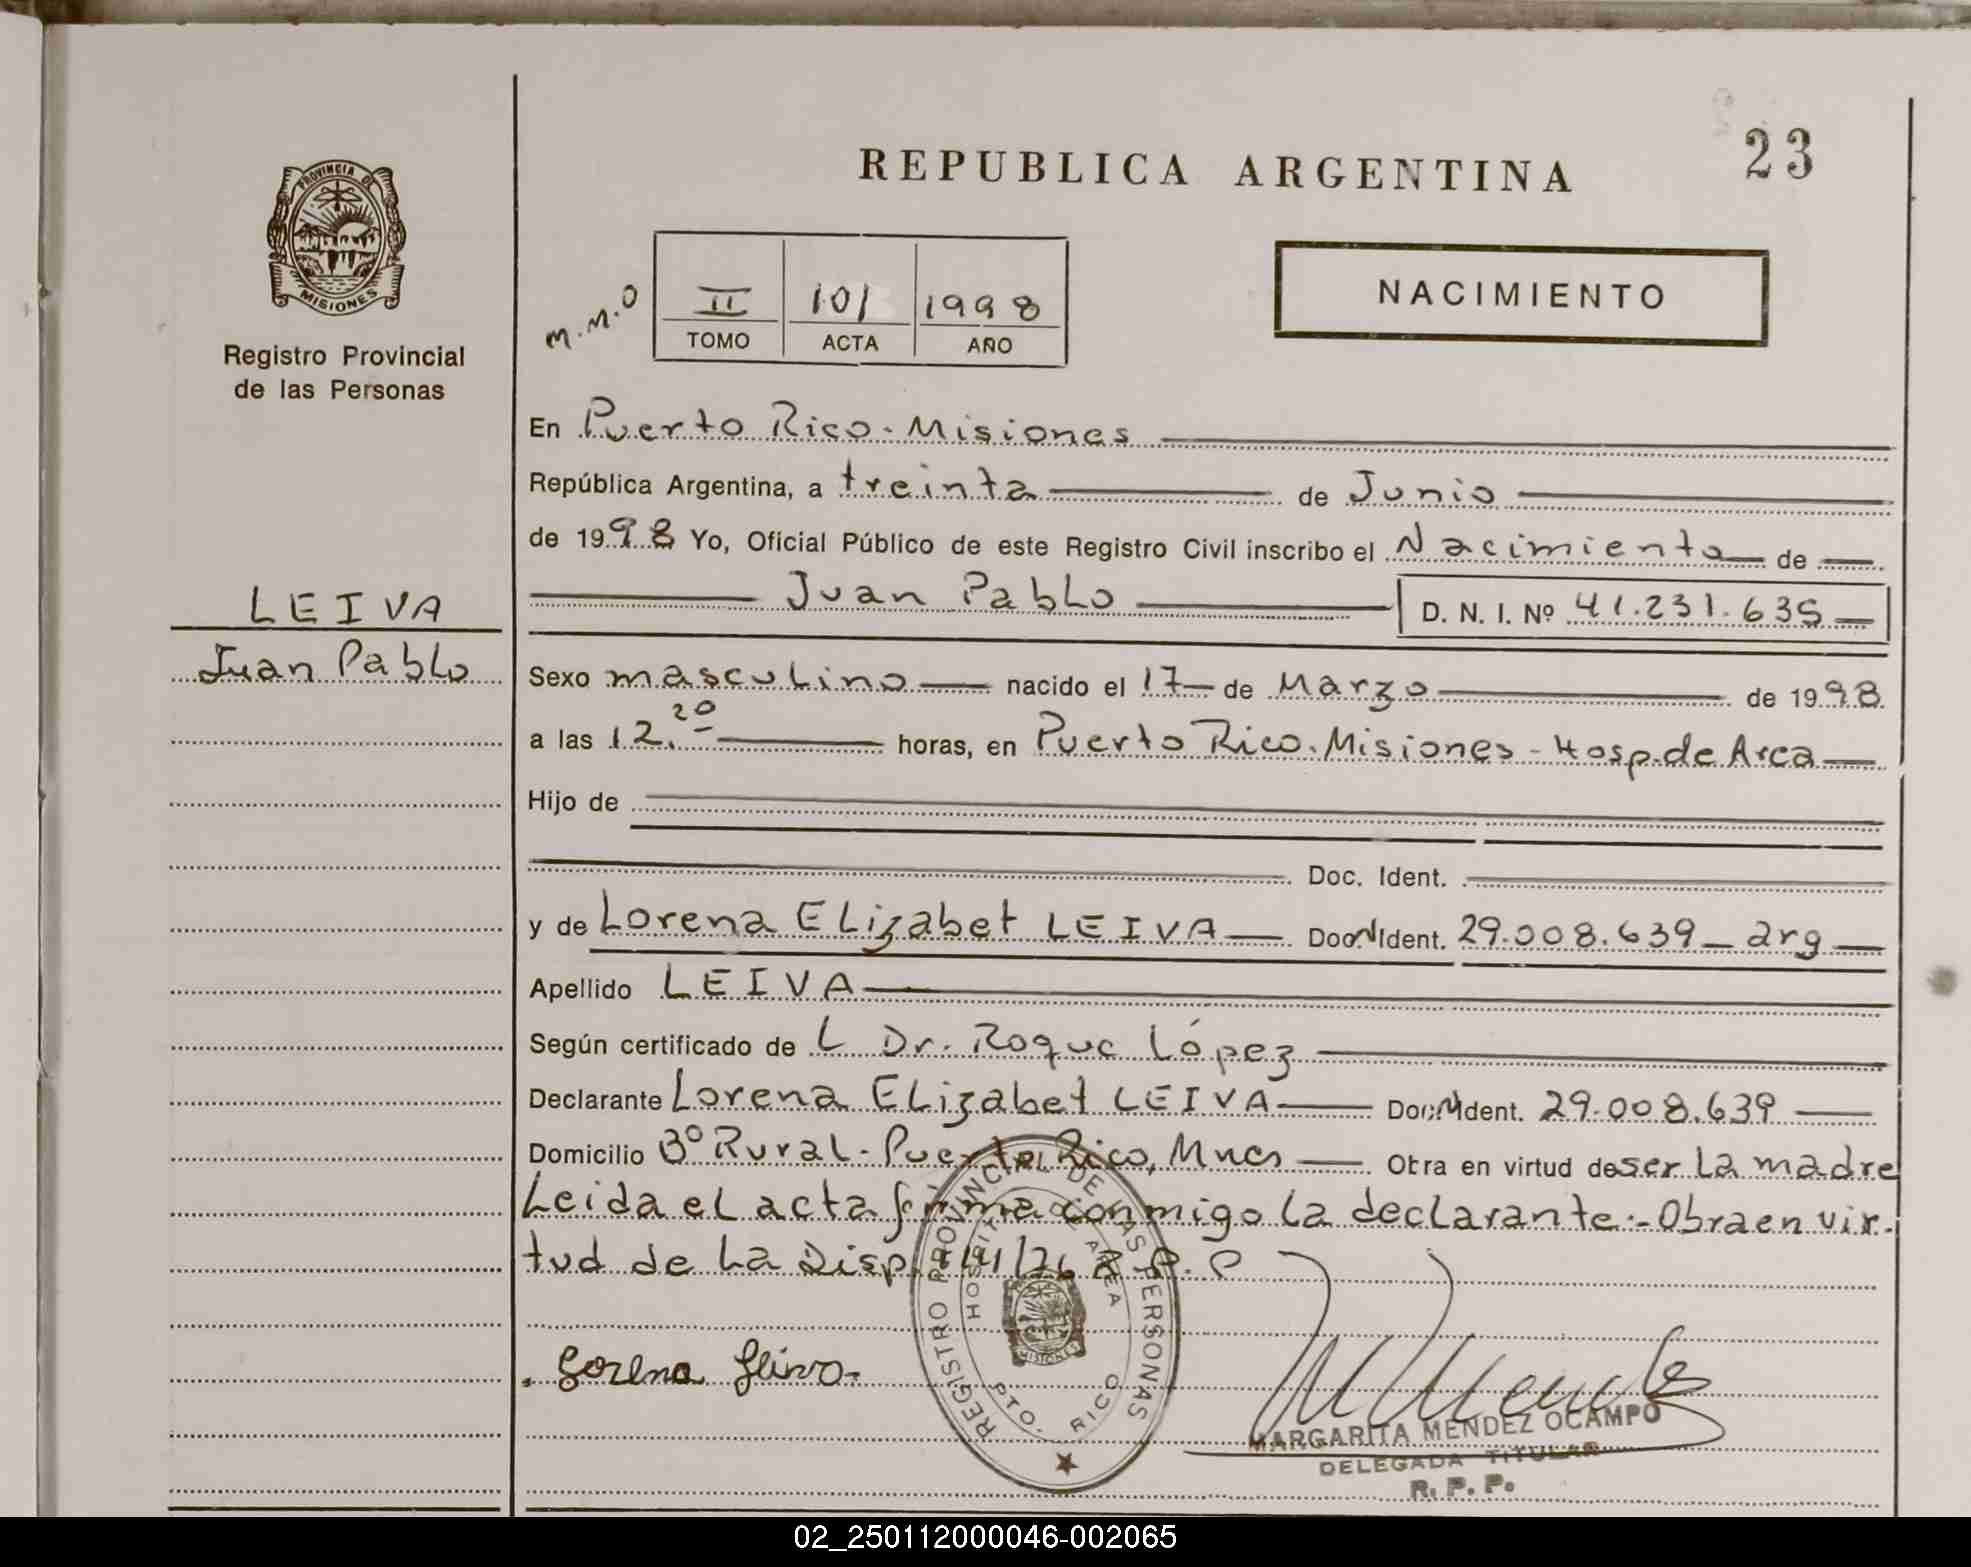 REPUBLICA ARGENTINA
23
PROVINCIA DE
MISIONES
Registro Provincial
de las Personas
M.M.O
II 101 1998
TOMO ACTA AÑO
NACIMIENTO
En Puerto Rico. Misiones
República Argentina, a treinta de Junio
de 1998 Yo, Oficial Público de este Registro Civil inscribo el Nacimiento de
Juan Pablo D. N. I. Nº 41.231.635
LEIVA
Juan Pablo
Sexo masculino nacido el 17 de Marzo de 1998
a las 12.20 horas, en Puerto Rico. Misiones - Hosp. de Area
Hijo de
Doc. Ident.
y de Lorena Elizabet LEIVA Doc. Ident. 29.008.639 - arg
Apellido LEIVA
Según certificado de L Dr. Roque López
Declarante Lorena Elizabet LEIVA Doc. Ident. 29.008.639
Domicilio Bº Rural - Puerto Rico, Mnes Obra en virtud de ser la madre
Leida el acta firma conmigo la declarante - Obra en vir-
tud de la Disp. R.P.P
REGISTRO PROVINCIAL DE LAS PERSONAS
HOSPITAL DE AREA
MISIONES
PTO. RICO
Lorena Leiva
MARGARITA MENDEZ OCAMPO
DELEGADA TITULAR
R. P. P.
02_250112000046-002065